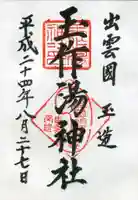 出雲國 玉造
玉作湯神社
平成二十四年八月二十七日